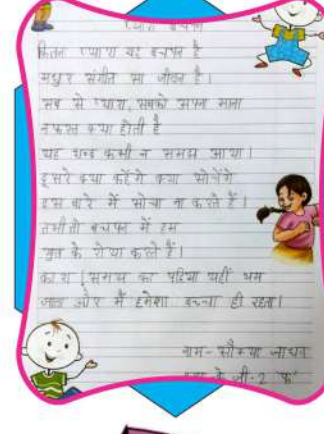 प्यारा बचपन
कितना प्यारा यह बचपन है
मधुर संगीत सा जीवन है।
सब से प्यारा, सबको अपना माना
नफरत क्या होती है
यह शब्द कभी न समझ आया।
दूसरे क्या कहेंगे क्या सोचेंगे
इस बारे में सोचा ना करते हैं।
तभी तो बचपन में हम
के रोया करते हैं।
काश! समय का पहिया यहीं थम
जाता और मैं हमेशा बच्चा ही रहता।
नाम- सौम्या जाधव
के जी-2 "फ"